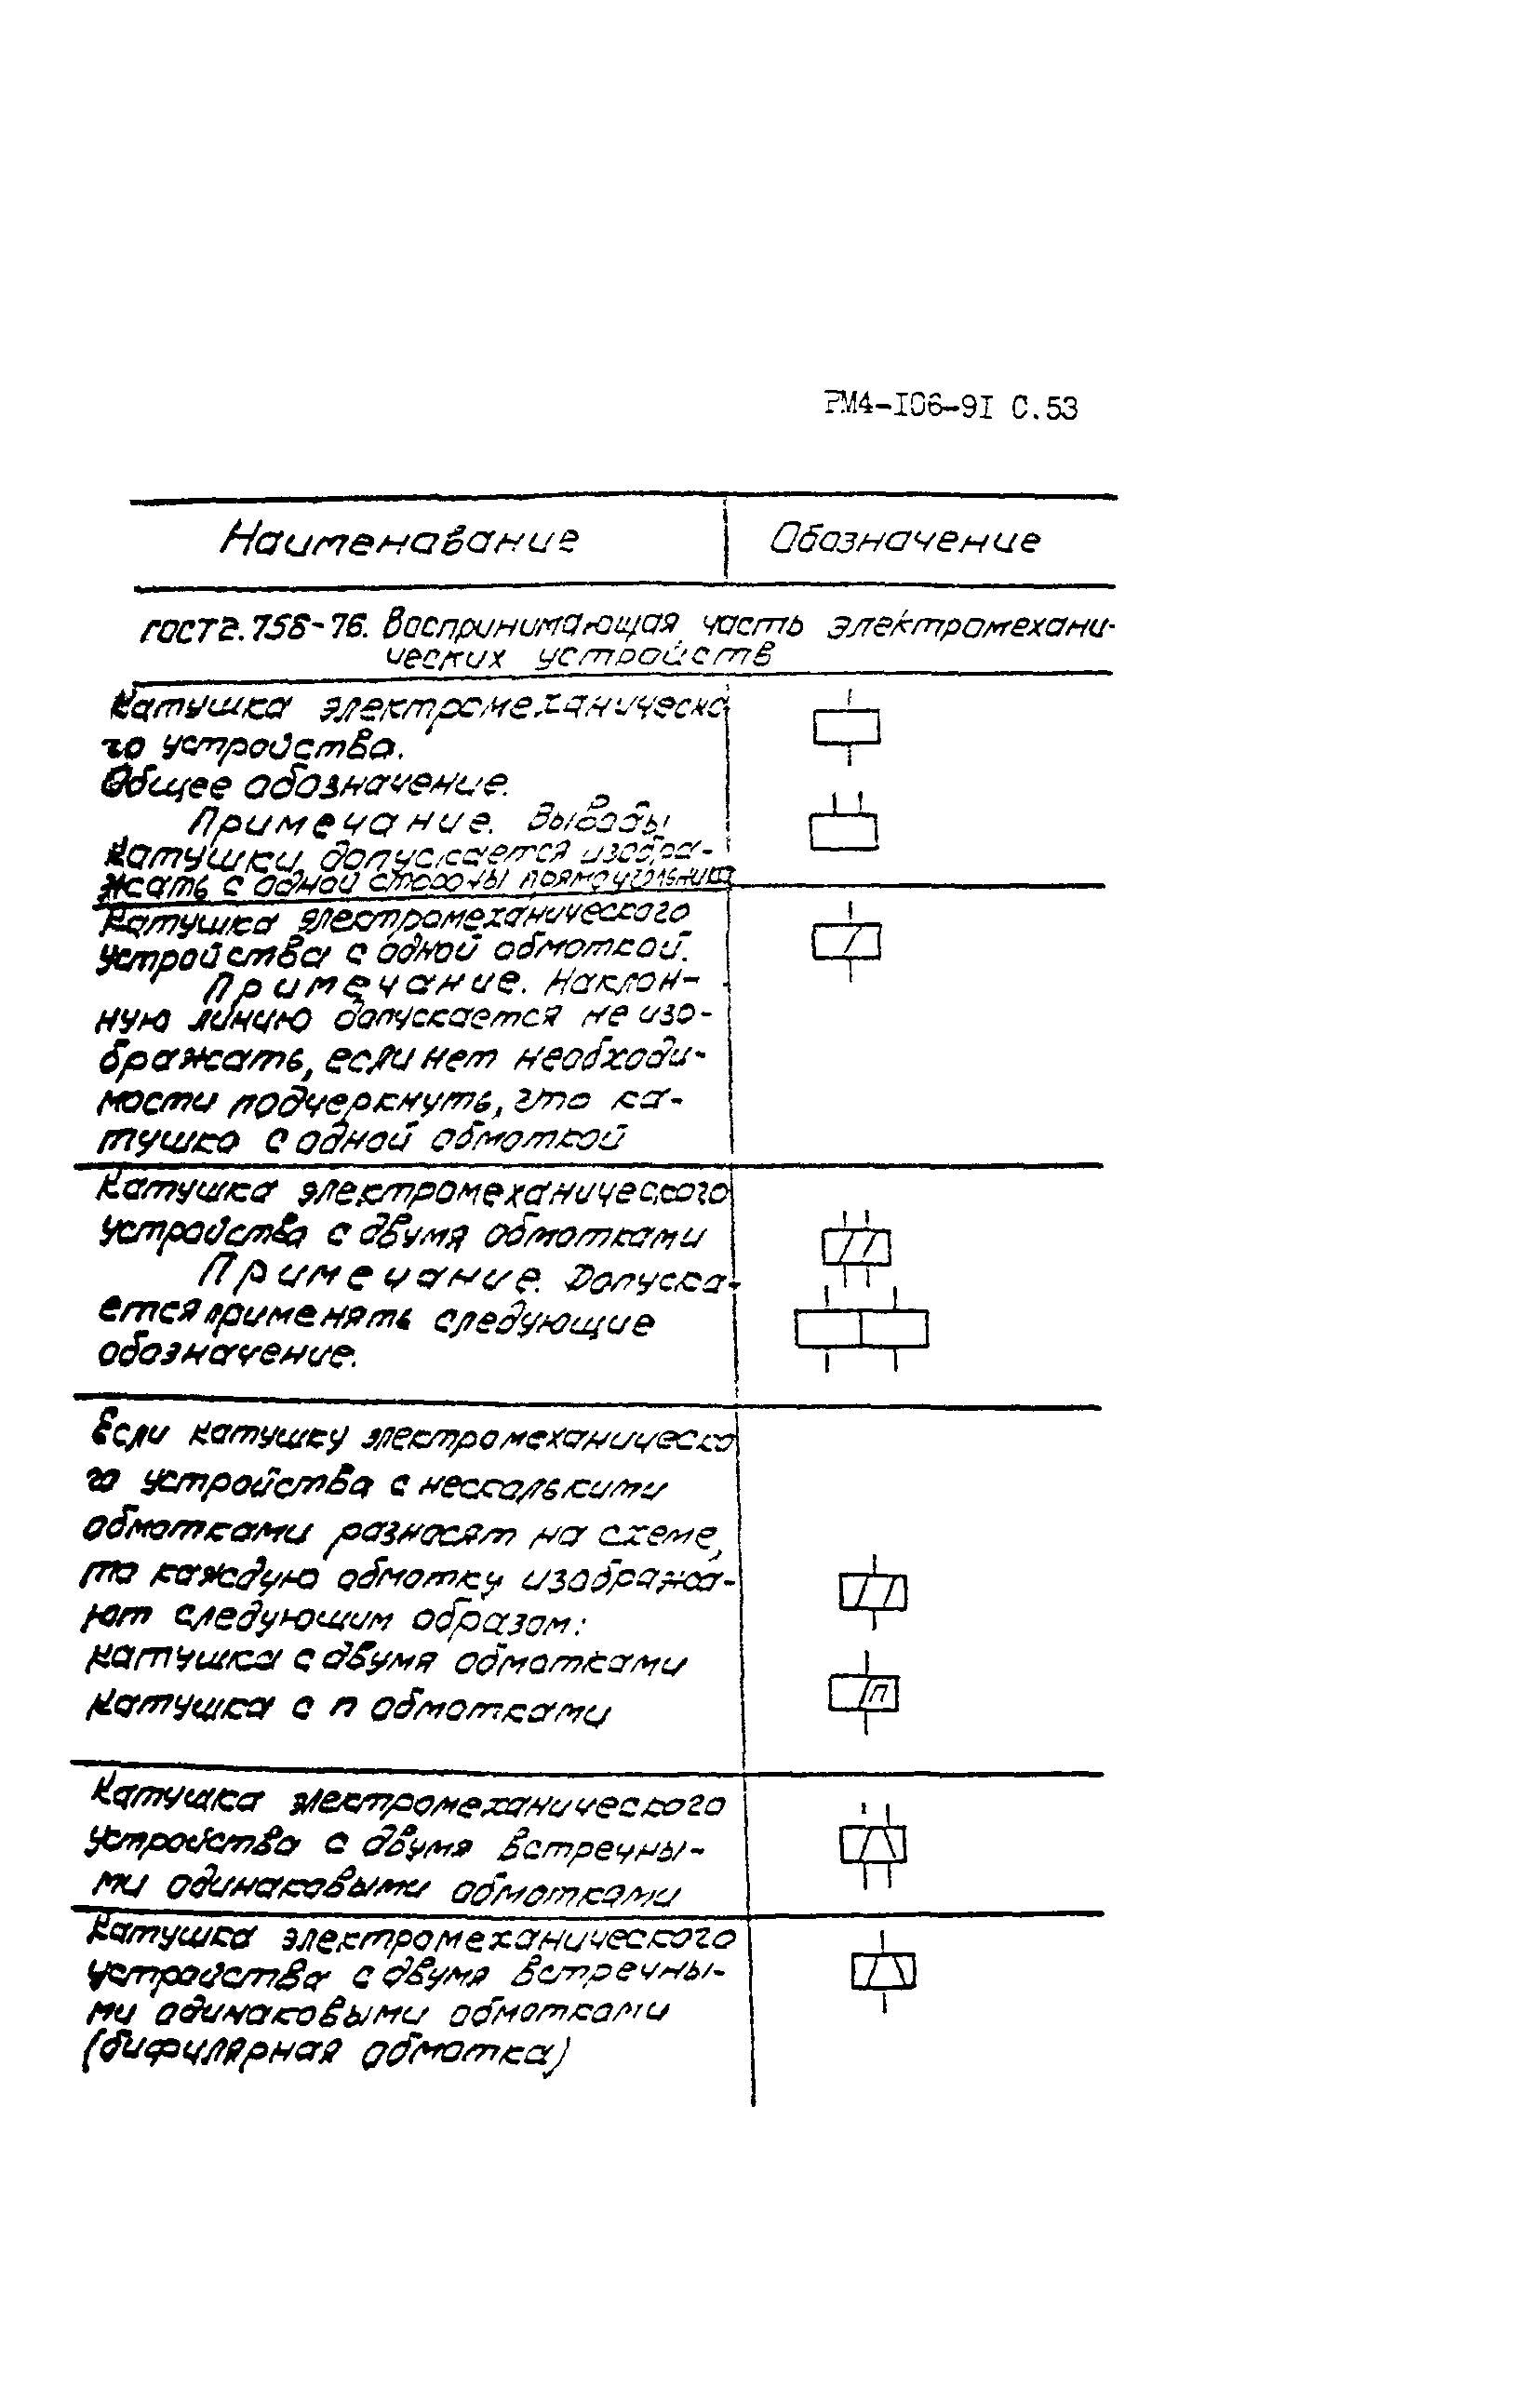 РМ4-106-91 С.53
Наименавание
Обозначение
ГОСТ 2.756-76. Воспринимающая часть электромехани-
ческих устройств
Катушка электромеханическо
го устройства.
Общее обозначение.
Примечание. Выводы
катушки допускается изобра-
жать с одной стороны прямоугольника
Катушка электромеханического
устройства с одной обмоткой.
Примечание. Наклон-
ную линию допускается не изо-
бражать, если нет необходи-
мости подчеркнуть, что ка-
тушка с одной обмоткой
Катушка электромеханического
устройства с двумя обмотками
Примечание. Допуска-
ется применять следующие
обозначение.
Если катушку электромеханическо
го устройства с нескалькими
обмотками разносят на схеме,
то каждую обмотку изобража-
ют следующим образом:
катушка с двумя обмотками
катушка с п обмотками
п
Катушка электромеханического
устройства с двумя встречны-
ми одинаковыми обмотками
Катушка электромеханического
устройства с двумя встречны-
ми одинаковыми обмотками
(бифилярная обмотка)